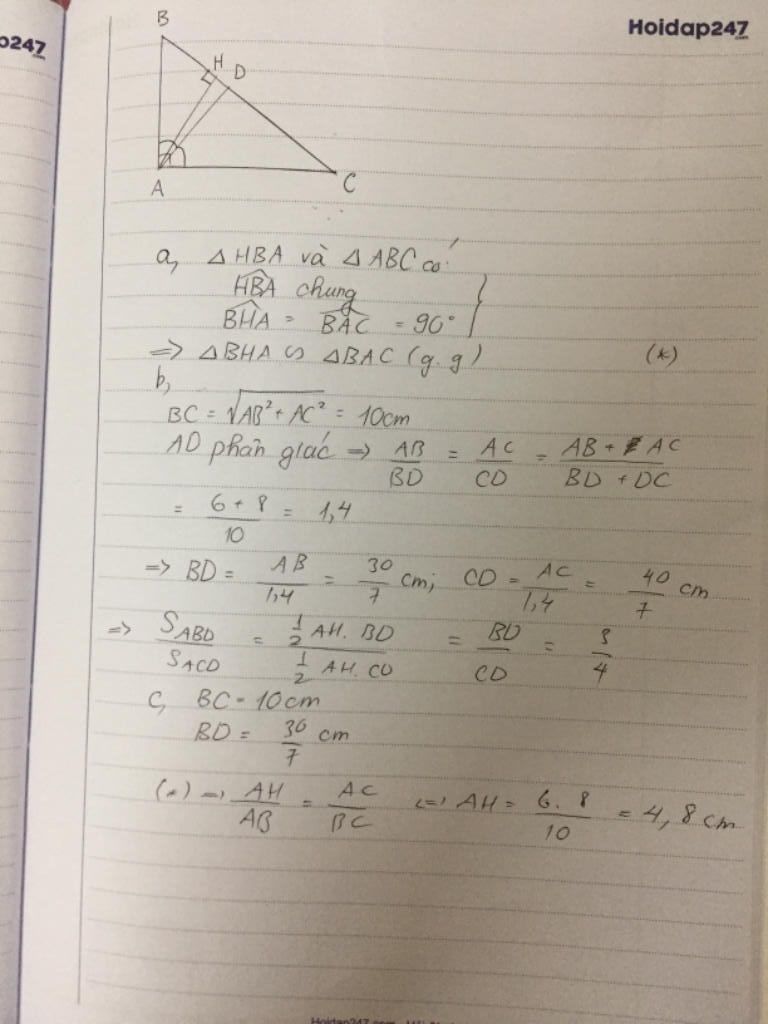 p247
.com
Hoidap247
.com
B
H D
A
C
a, △HBA và △ABC có
HBA chung
BHA = BAC = 90°
=> △BHA ∽ △BAC (g.g) (*)
b,
BC = √AB² + AC² = 10cm
AD phân giác => AB/BD = AC/CD = AB + AC/BD + DC
= 6 + 8/10 = 1,4
=> BD = AB/1,4 = 30/7 cm; CD = AC/1,4 = 40/7 cm
=> S_ABD/S_ACD = 1/2 AH. BD/1/2 AH. CD = BD/CD = 3/4
c, BC = 10cm
BD = 30/7 cm
(*) => AH/AB = AC/BC <=> AH = 6. 8/10 = 4,8cm